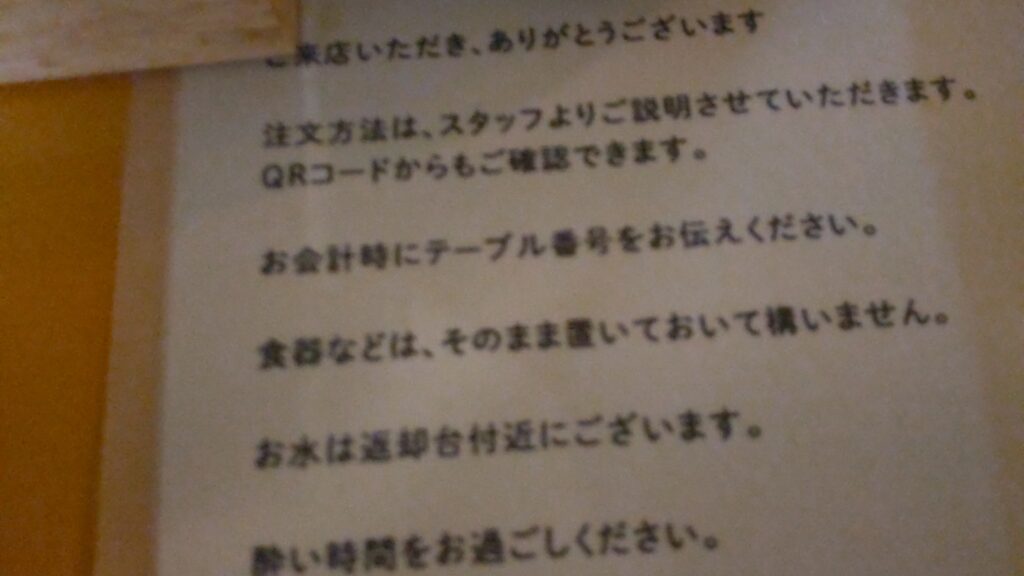 ご来店いただき、ありがとうございます
注文方法は、スタッフよりご説明させていただきます。
QRコードからもご確認できます。
お会計時にテーブル番号をお伝えください。
食器などは、そのまま置いておいて構いません。
お水は返却台付近にございます。
酔い時間をお過ごしください。